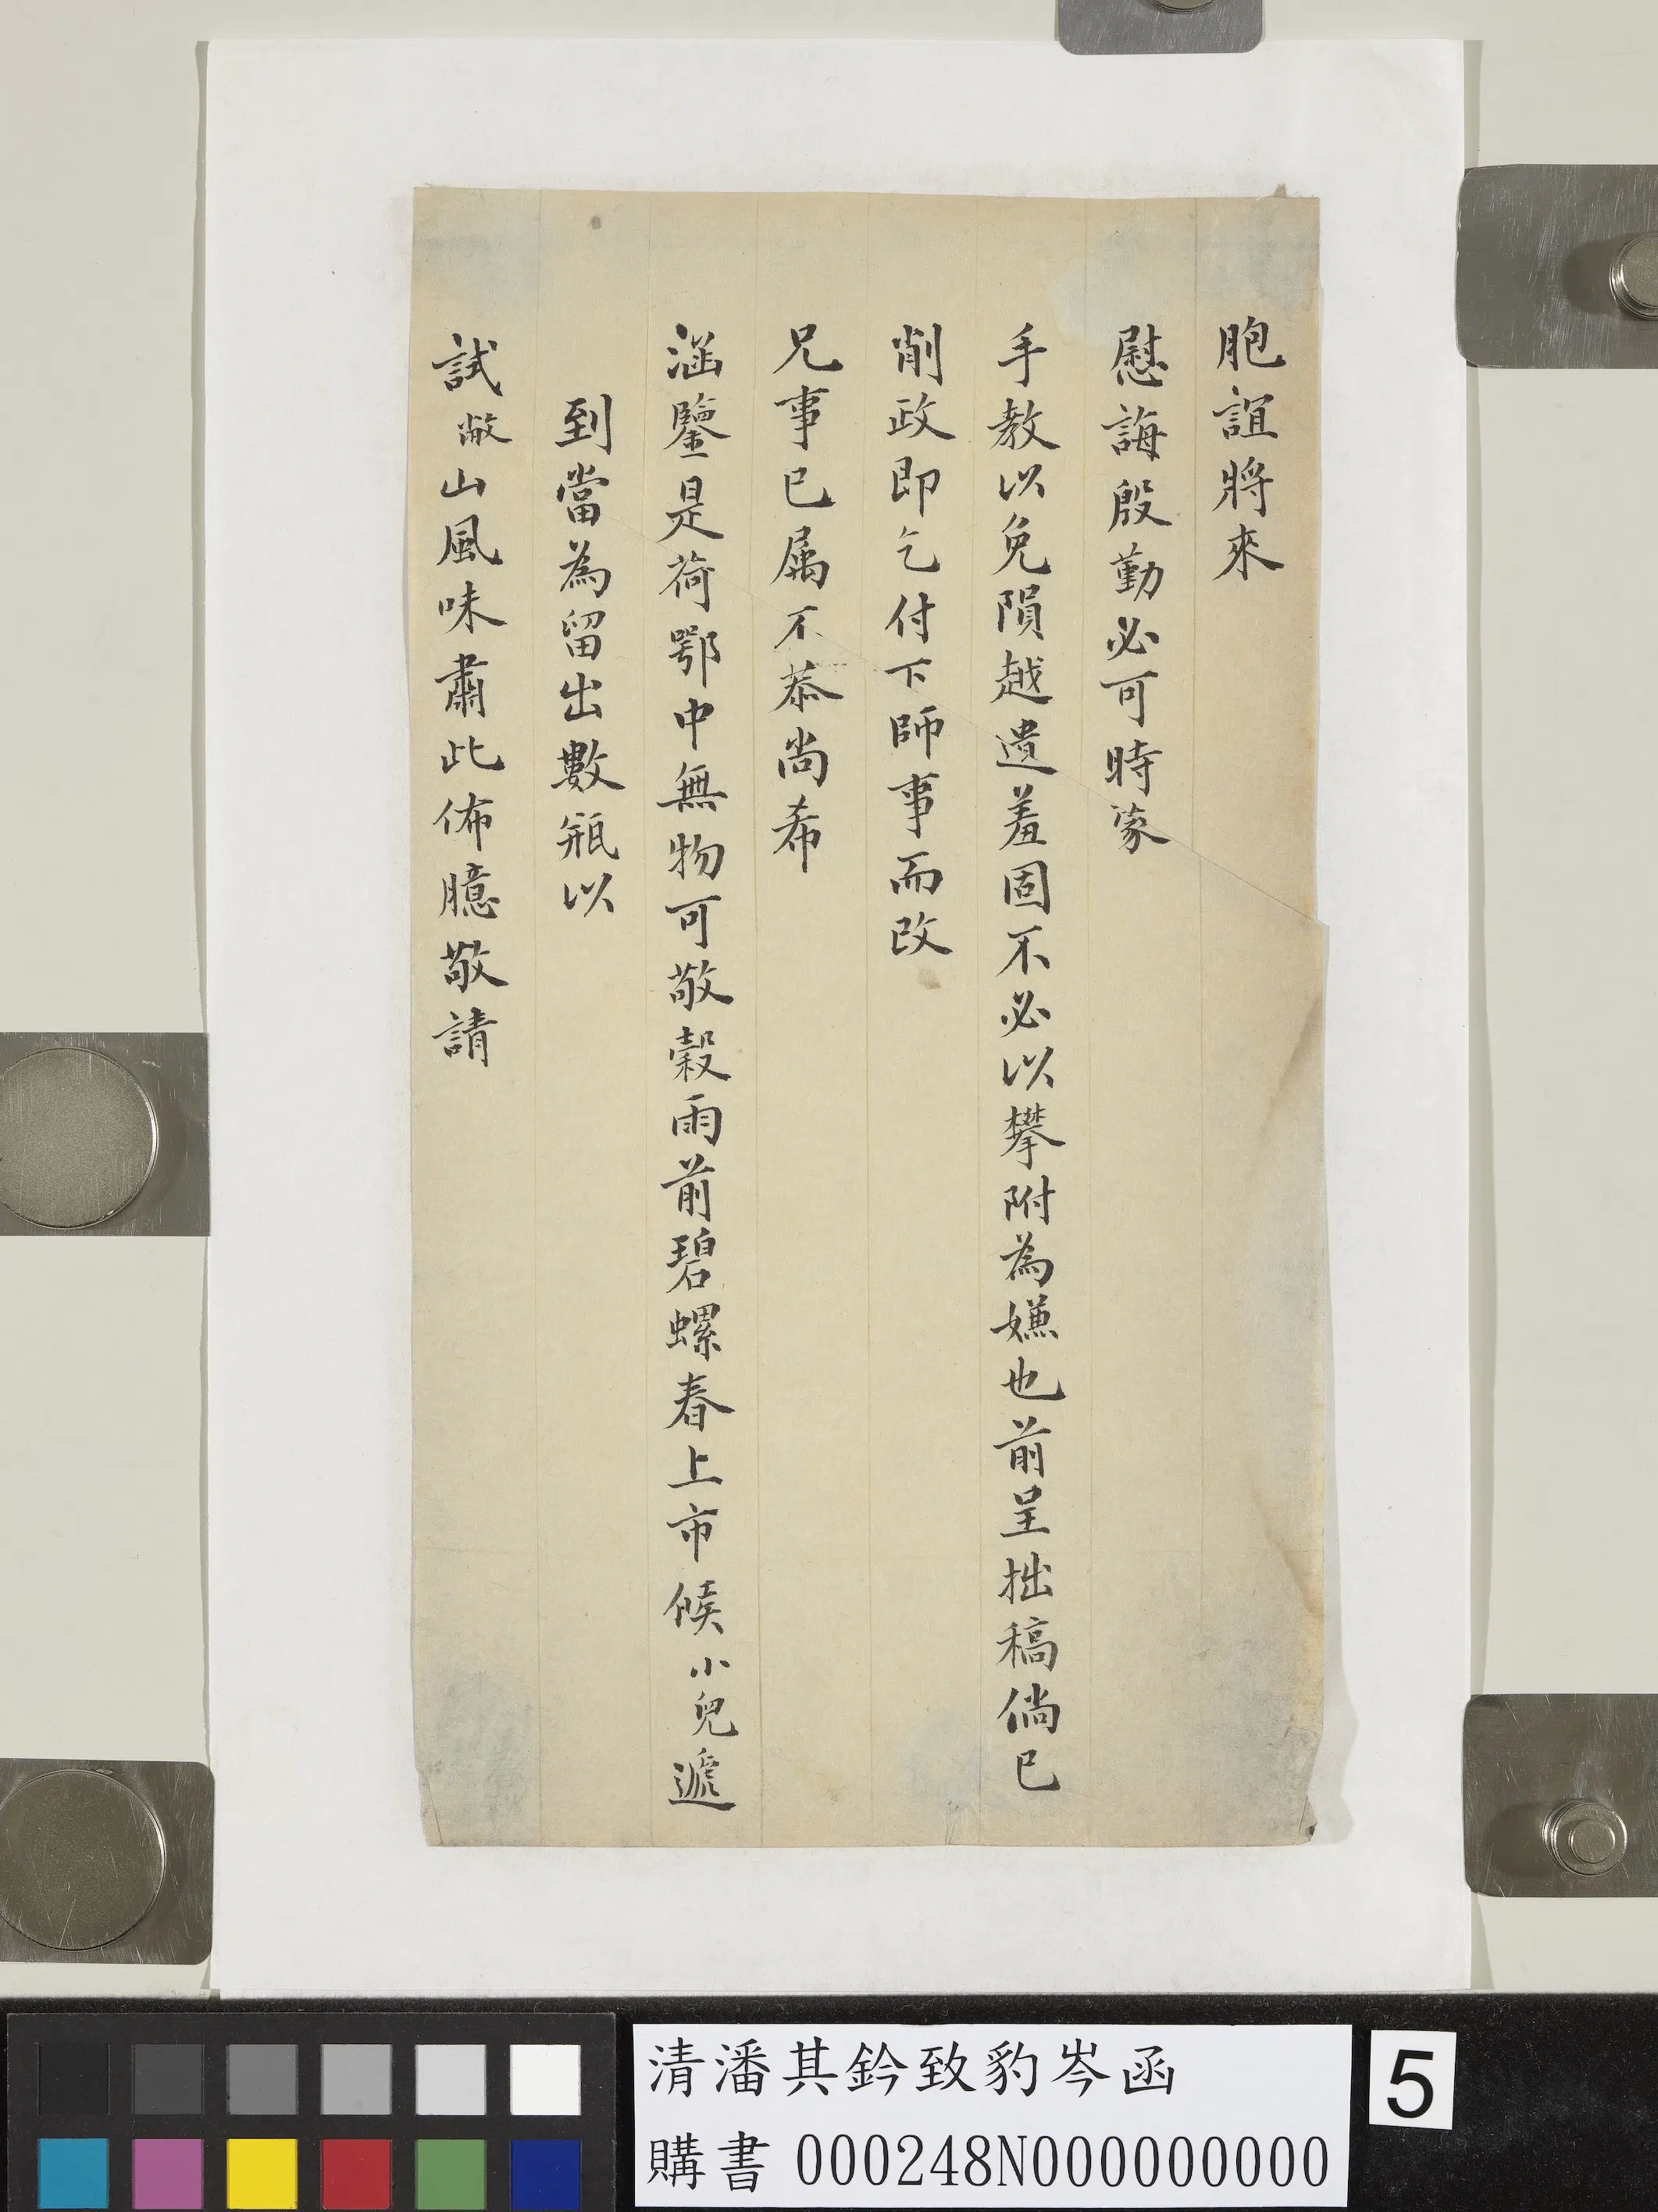 胞誼將來
慰誨殷勤必可時蒙
手教以免隕越遺羞固不必以攀附為嫌也前呈拙稿倘已
削政即乞付下師事而改
兄事已屬不恭尚希
涵鑒是荷鄂中無物可敬穀雨前碧螺春上市候小兒遞
到當為留出數瓶以
試敝山風味肅此佈臆敬請
清潘其鈐致豹岑函
購書 000248N000000000
5